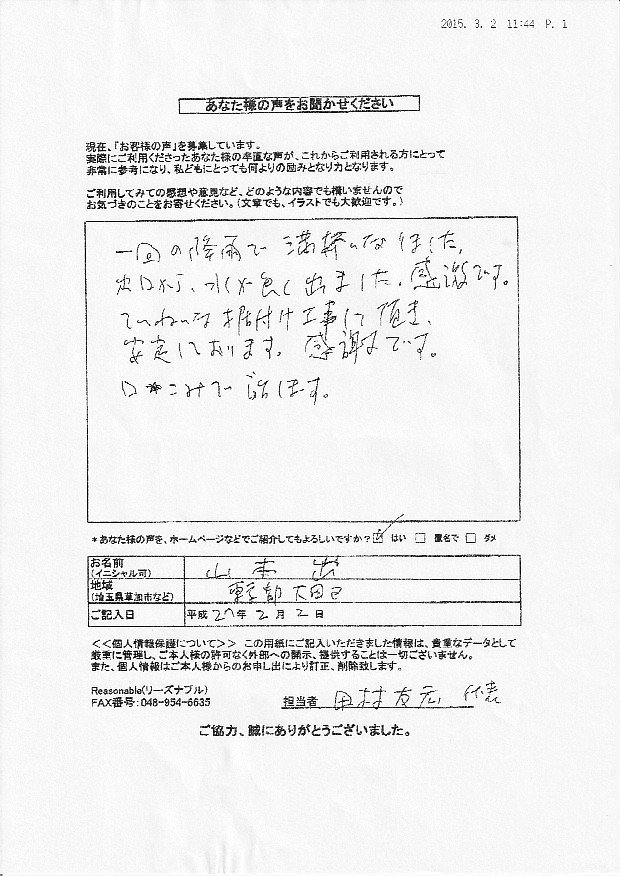 2015. 3. 2 11:44 P. 1
あなた様の声をお聞かせください
現在、「お客様の声」を募集しています。
実際にご利用くださったあなた様の率直な声が、これからご利用される方にとって
非常に参考になり、私どもにとっても何よりの励みとなり力となります。
ご利用してみての感想や意見など、どのような内容でも構いませんので
お気づきのことをお寄せください。(文章でも、イラストでも大歓迎です。)
一回の降雨で満杯になりました。
出口から、水が良く出ました。感激です。
ていねいな据付け工事して頂き、
安定しております。感謝です。
口こみで
*あなた様の声を、ホームページなどでご紹介してもよろしいですか? ☑ はい □ 匿名で □ ダメ
お名前
(イニシャル可) 山本
地域
(埼玉県草加市など) 東京都大田区
ご記入日 平成27年2月2日
<<個人情報保護について>> この用紙にご記入いただきました情報は、貴重なデータとして
厳重に管理し、ご本人様の許可なく外部への開示、提供することは一切ございません。
また、個人情報はご本人様からのお申し出により訂正、削除致します。
Reasonable(リーズナブル)
FAX番号:048-954-6635
担当者 田村友宏 代表
ご協力、誠にありがとうございました。